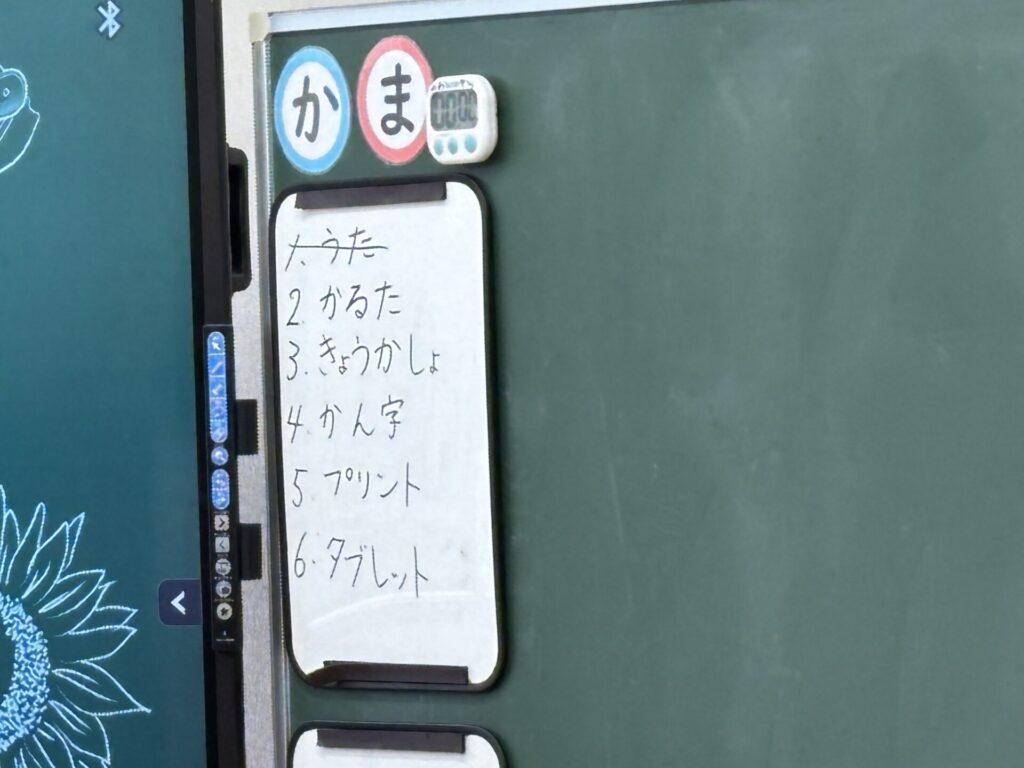 か
ま
1. うた
2. かるた
3. きょうかしょ
4. かん字
5 プリント
6. タブレット